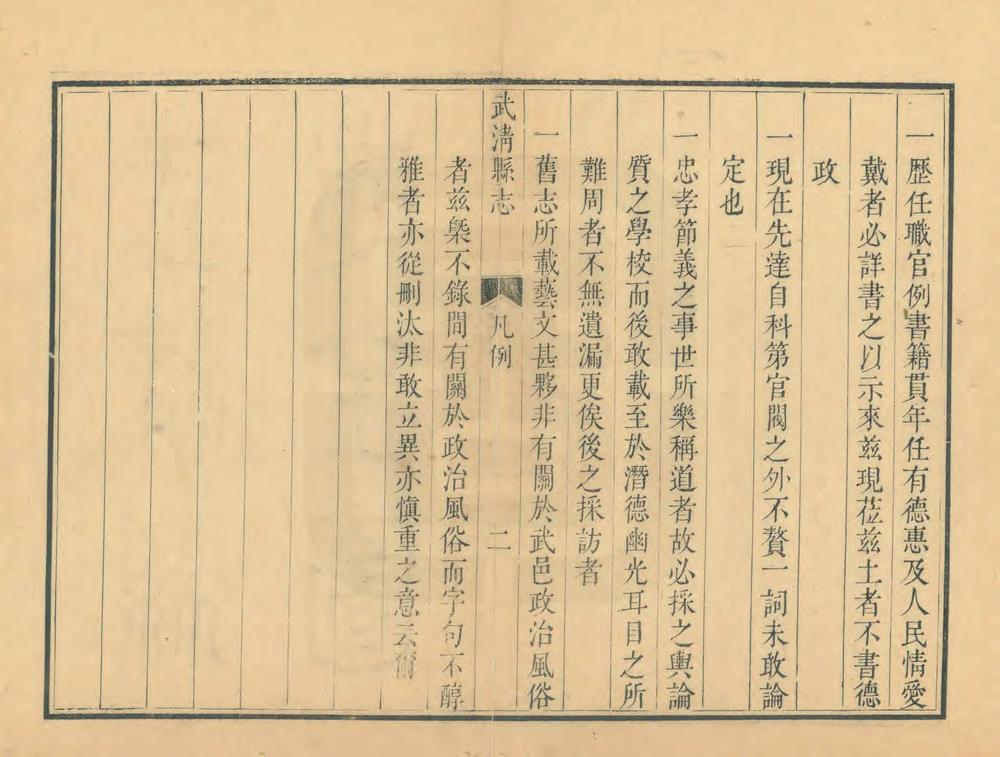 一歷任職官例書籍貫年任有德惠及人民情愛
戴者必詳書之以示來兹現莅兹土者不書德
政
一現在先達自科第官閥之外不贅一詞未敢論
定也
一忠孝節義之事世所樂稱道者故必採之輿論
質之學校而後敢載至於潛德幽光耳目之所
難周者不無遺漏更俟後之採訪者
一舊志所載藝文甚夥非有關於武邑政治風俗
武清縣志 凡例 二
者兹槩不錄間有關於政治風俗而字句不醇
雅者亦從刪汰非敢立異亦慎重之意云爾